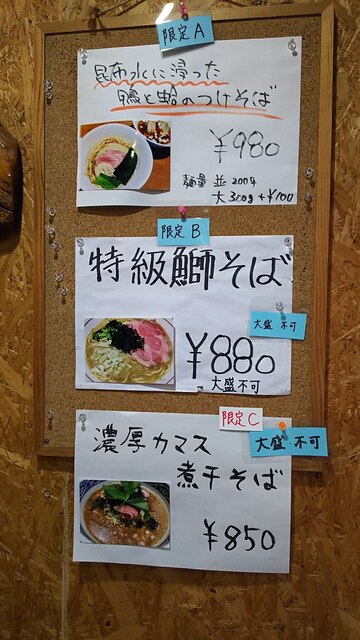 限定A
昆布水に浸った
鴨と蛤のつけそば
¥980
麺量 並 200g
大 300g +¥100
限定B
特級鰤そば
大盛 不可
¥880
大盛不可
限定C
大盛 不可
濃厚カマス
煮干そば
¥850